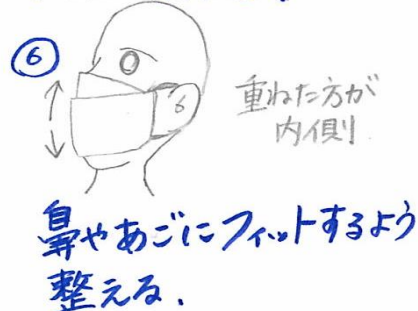 ⑥
重ねた方が
内側
鼻やあごにフィットするよう
整える.